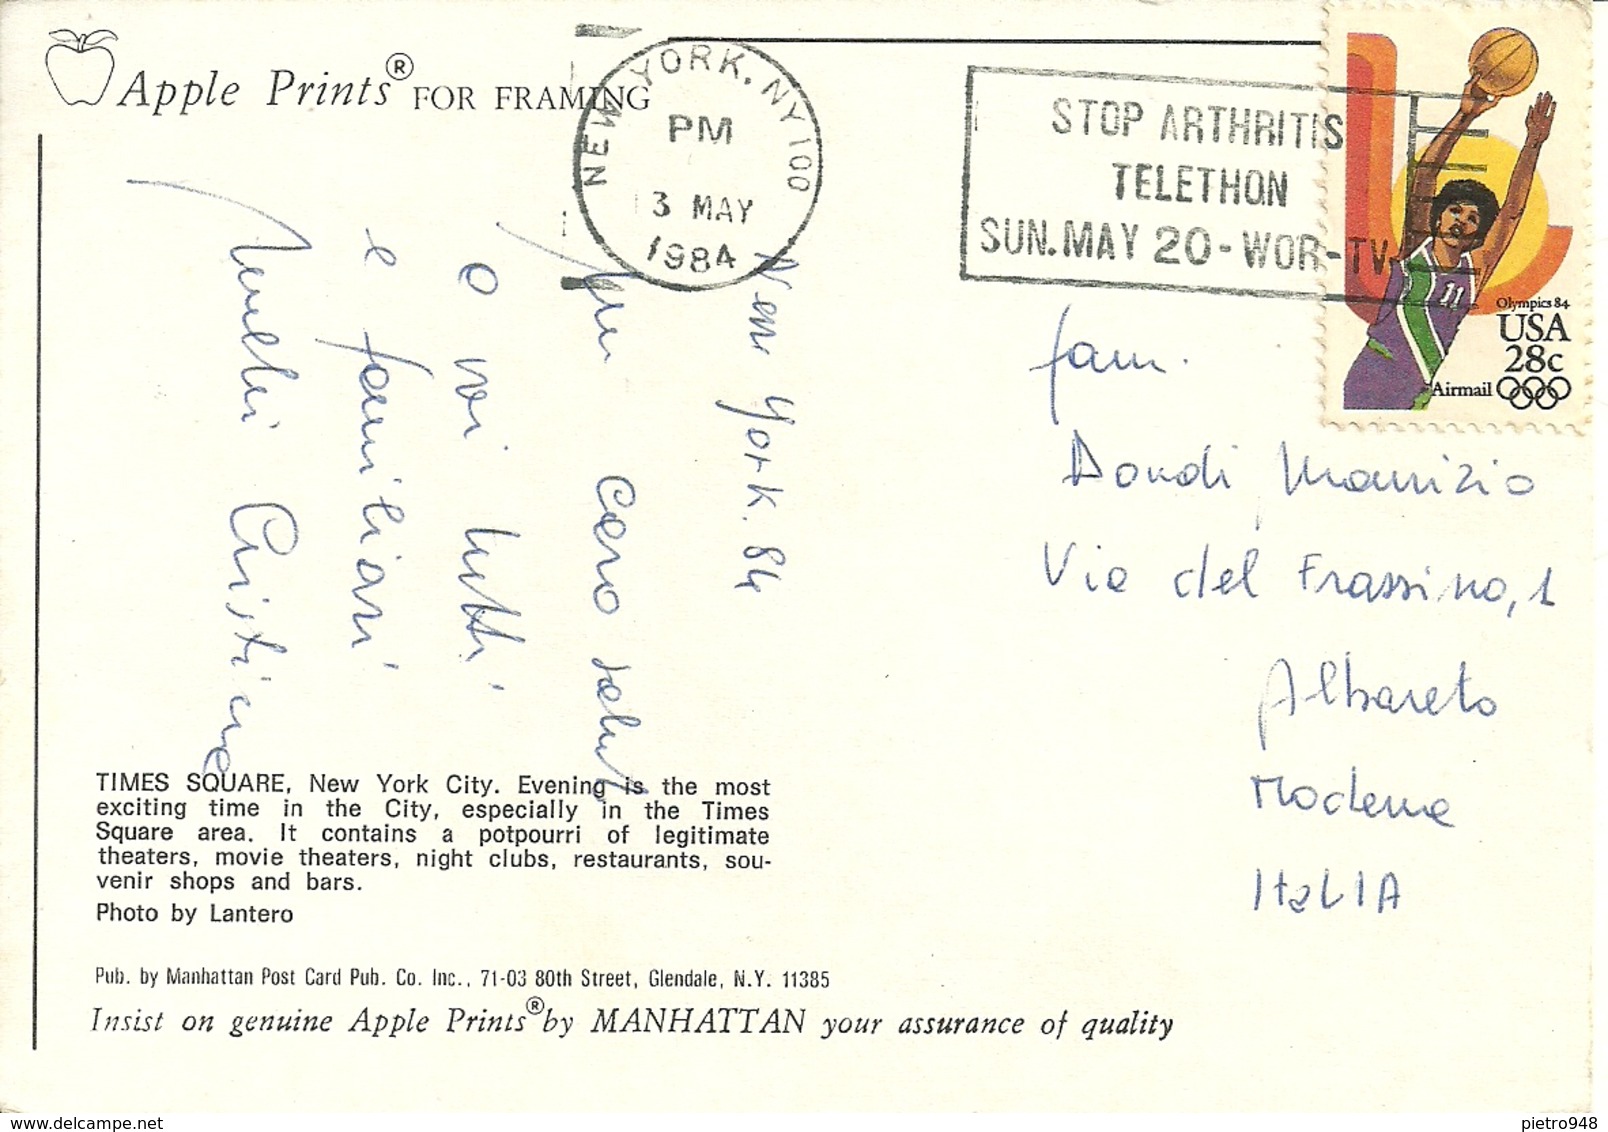 Apple Prints® FOR FRAMING
NEW YORK, NY 100
PM
3 MAY
1984
STOP ARTHRITIS
TELETHON
SUN. MAY 20 - WOR-TV
11
Olympics 84
USA
28c
Airmail
New York. 84
Un caro salut
a voi tutti
e familiari
Cristina
fam.
Dondi Maurizio
Via del Frassino, 1
Albareto
Modena
ITALIA
TIMES SQUARE, New York City. Evening is the most
exciting time in the City, especially in the Times
Square area. It contains a potpourri of legitimate
theaters, movie theaters, night clubs, restaurants, sou-
venir shops and bars.
Photo by Lantero
Pub. by Manhattan Post Card Pub. Co. Inc., 71-03 80th Street, Glendale, N.Y. 11385
Insist on genuine Apple Prints® by MANHATTAN your assurance of quality
delcampe.net
pietro948